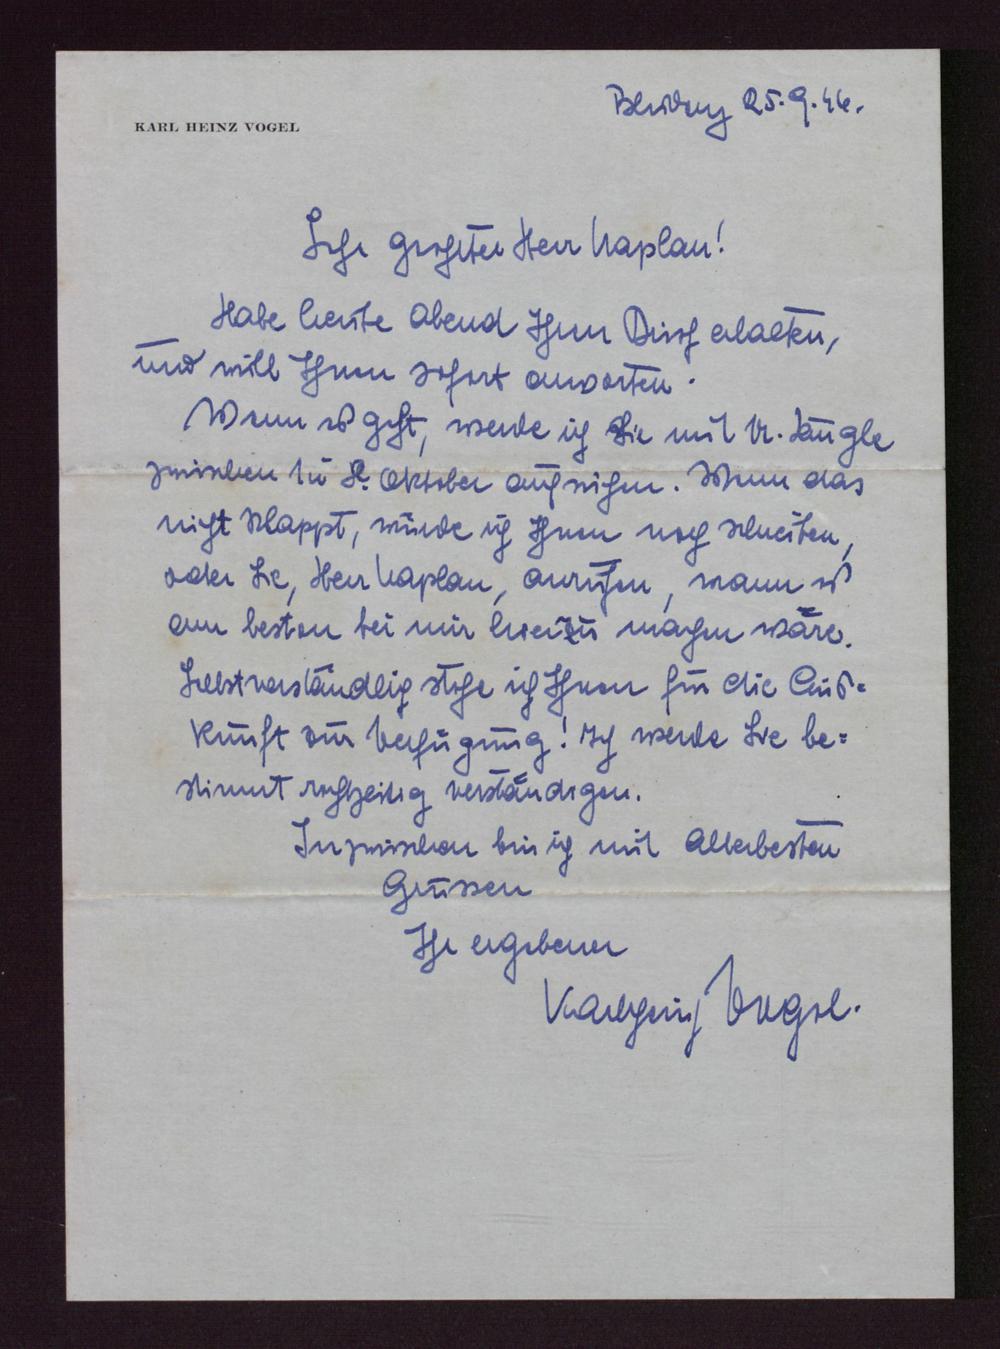 KARL HEINZ VOGEL
25.9.46.
Sehr geehrter Herr Kaplan!
Habe heute Abend Ihren Brief erhalten,
und will Ihnen sofort anworten.
Wenn es geht, werde ich Sie mit
zwischen Oktober aufsuchen. Wenn das
nicht klappt, würde ich Ihnen noch schreiben,
oder Sie, Herr Kaplan, anrufen, wann es
am besten bei mir hierzu machen wäre.
Selbstverständlich stehe ich Ihnen für die Aus-
kunft zur Verfügung! Ich werde Sie be=
stimmt rechtzeitig verständigen.
Inzwischen bin ich mit allerbesten
Grüssen
Ihr ergebener
Karlheinz Vogel.